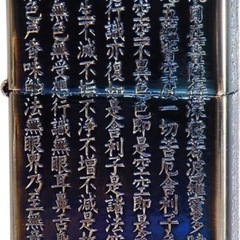 自在菩薩行深般若波羅蜜多時
五蘊皆空度一切苦厄舎利子
不異色色即是空空即是
行識亦復如是舎利子是諸法
不滅不垢不浄不増不減是故
無色無受想行識無眼耳鼻舌
色声香味触法無眼界乃至無